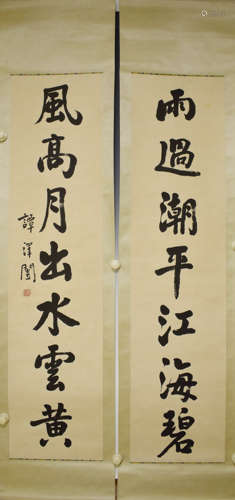 雨過潮平江海碧
風高月出水雲黃
譚澤闓